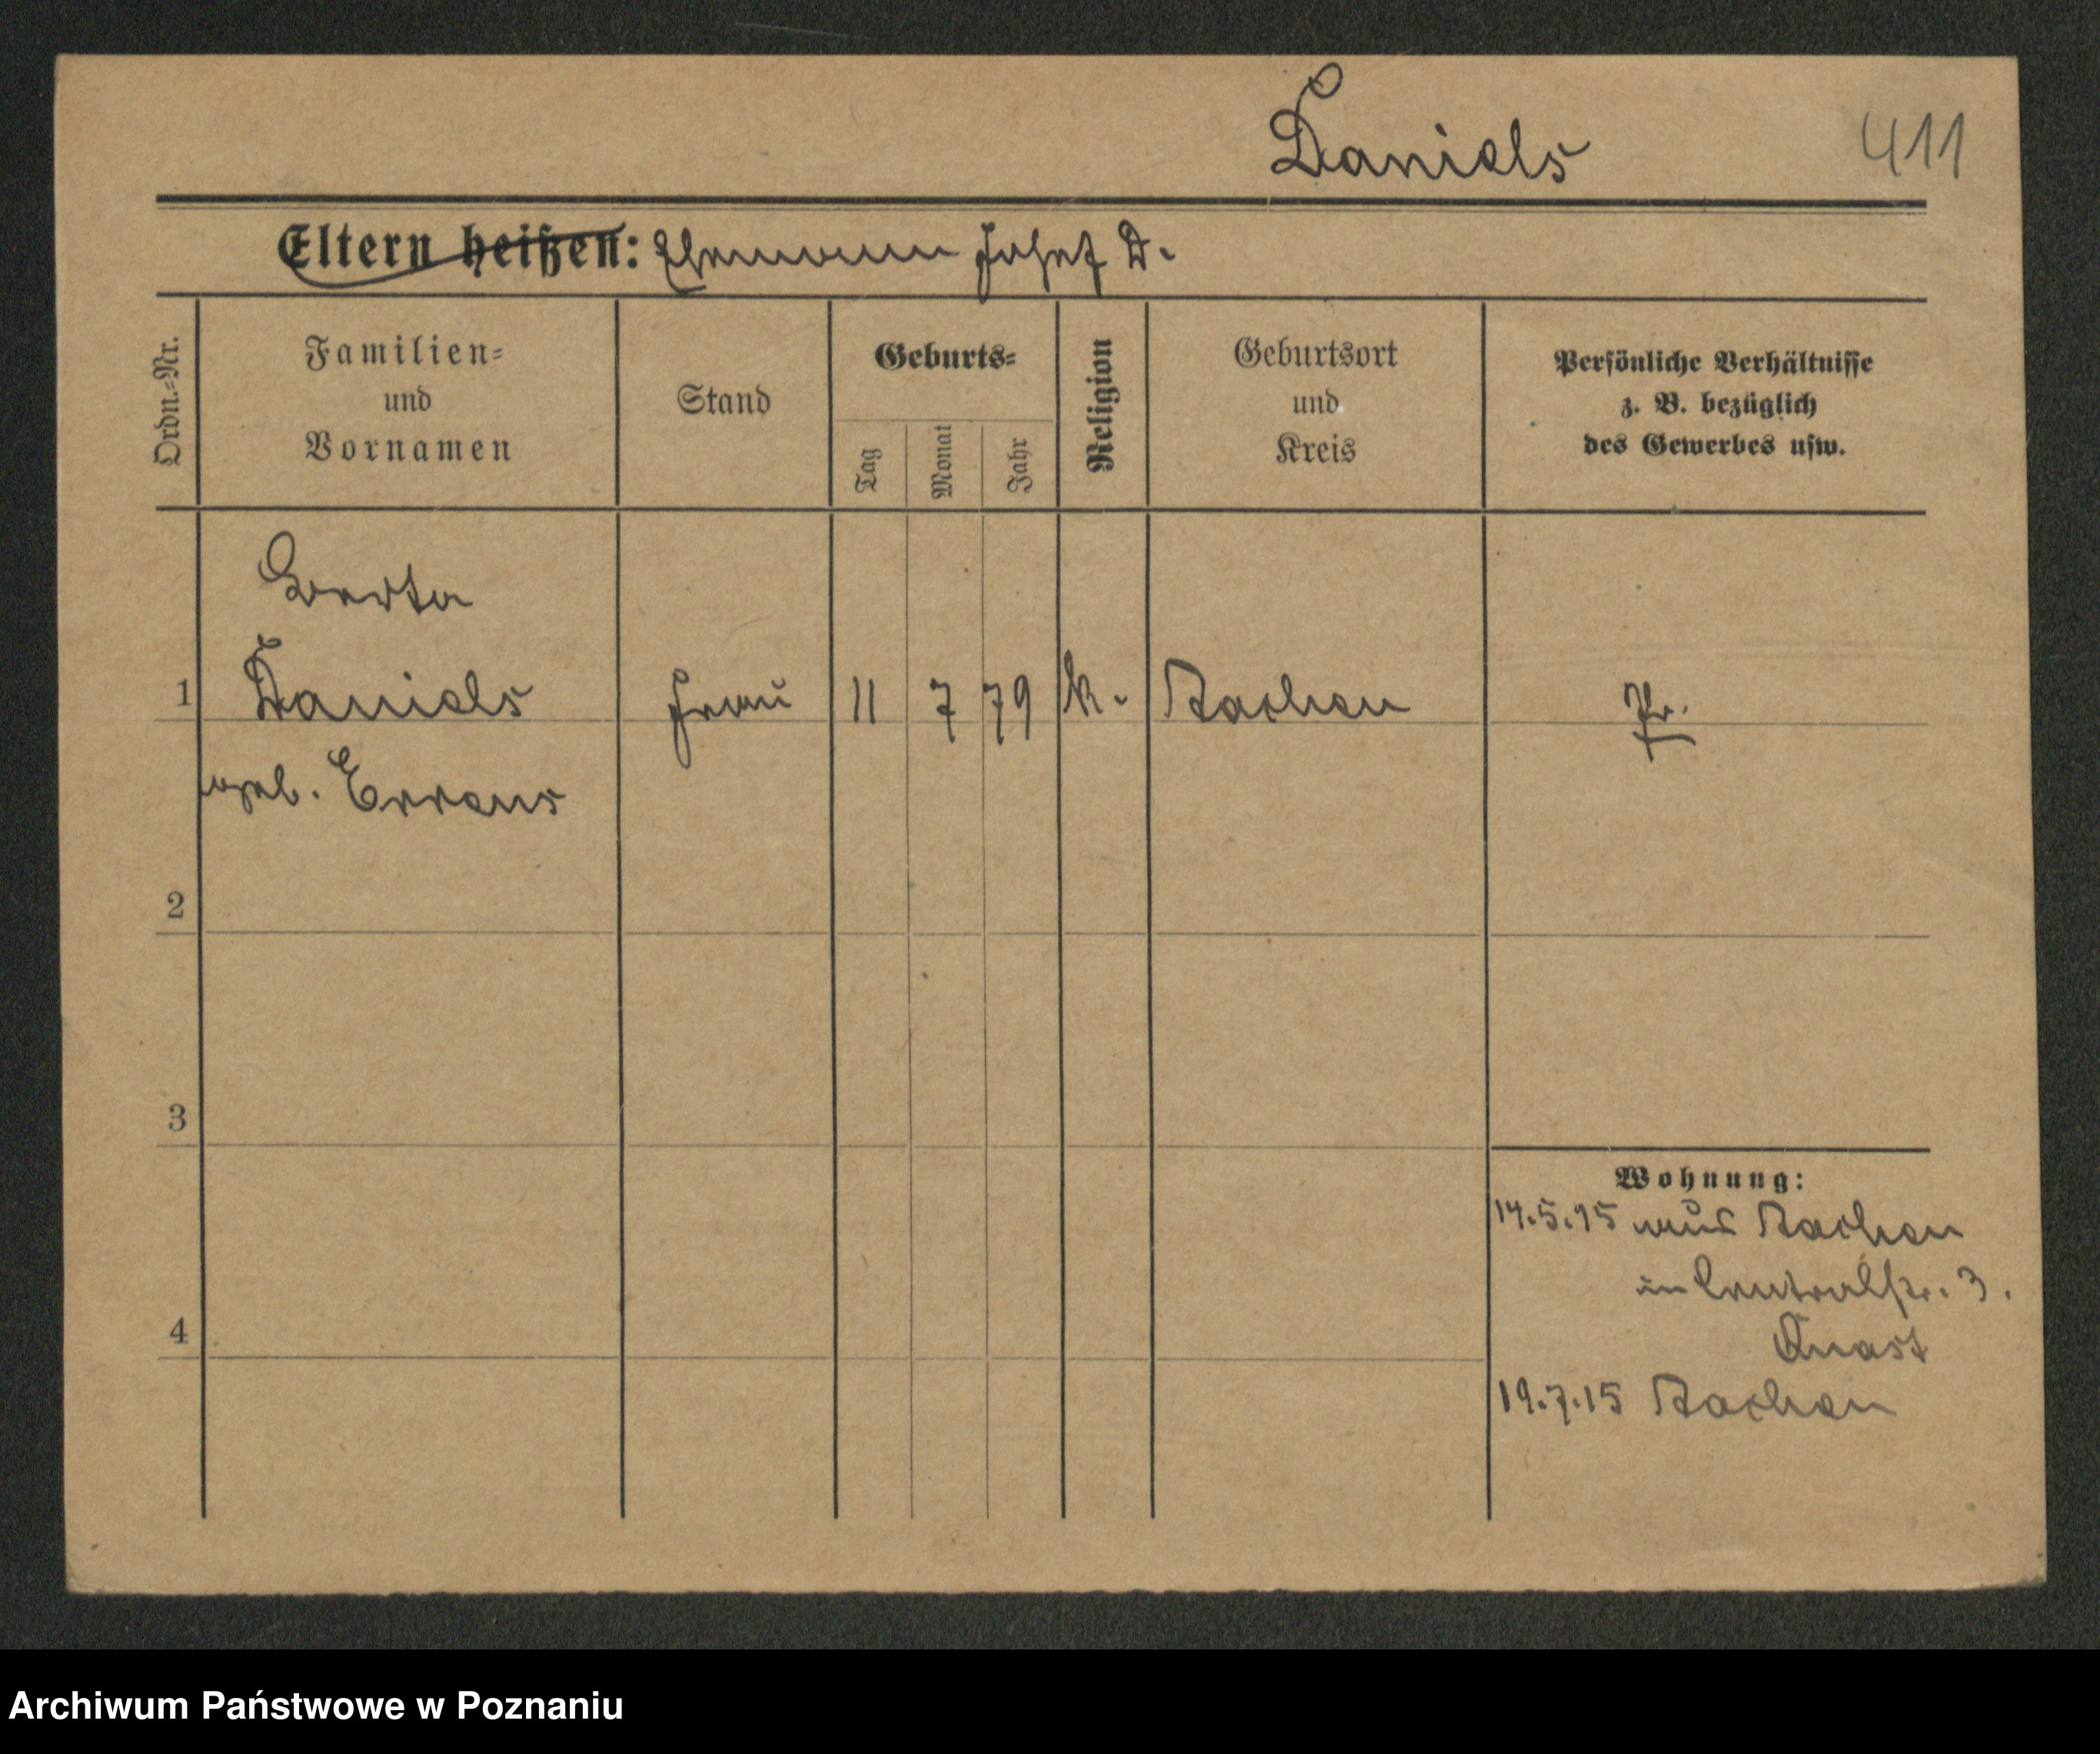 Daniels 411
Eltern heißen: Ehemann Josef D.
Ordn.-Nr.
Familien-
und
Vornamen
Stand
Geburts-
Tag
Monat
Jahr
Religion
Geburtsort
und
Kreis
Persönliche Verhältnisse
z. B. bezüglich
des Gewerbes usw.
Berta
1 Daniels Frau 11 7 79 k. Aachen Pr.
geb. Errens
2
3
4
Wohnung:
14.5.15 aus Aachen
in Centralstr. 3.
Quast
19.7.15 Aachen
Archiwum Państwowe w Poznaniu